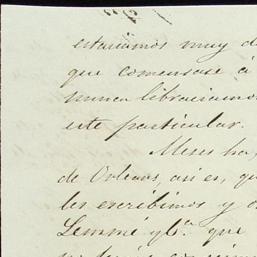 estaríamos muy d
que comensase á
nunca libraríamos
este particular.
Meses ha,
de Orleans, asi es, qu
les escribimos y
Lemmé y Cª. que